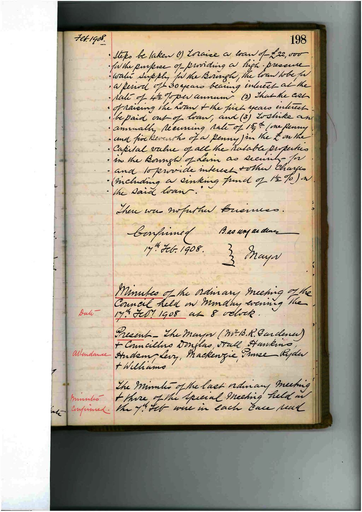 Feb. 1908.
198
steps be taken (1) To raise a loan of £22,000
for the purpose of providing a high-pressure
water supply for the Borough, the loan to be for
a period of 30 years bearing interest at the
rate of 4½% per annum: (2) That the cost
of raising the loan & the first years interest
be paid out of loan; and (3) To strike an
annually recurring rate of (one penny
and of a penny) in the £ on the
Capital value of all the ratable properties
in the Borough of as security for
and to provide interest & other charges
(including a sinking fund of %) on
the said loan.
There was no further business.
Confirmed
17th Feb. 1908.
Mayor
Minutes of the ordinary Meeting of the
Council held on Monday evening the
17th Feby 1908 at 8 oclock.
Date
Present – The Mayor (Mr. B. R. Gardener)
& Councillors Douglas, Hall Hawkins,
Attendance
Hudson Levy, Mackenzie Ryder
& Williams
The Minutes of the last ordinary Meeting
Minutes
& those of the Special Meeting held on
Confirmed
the 7th Feb were in each case read